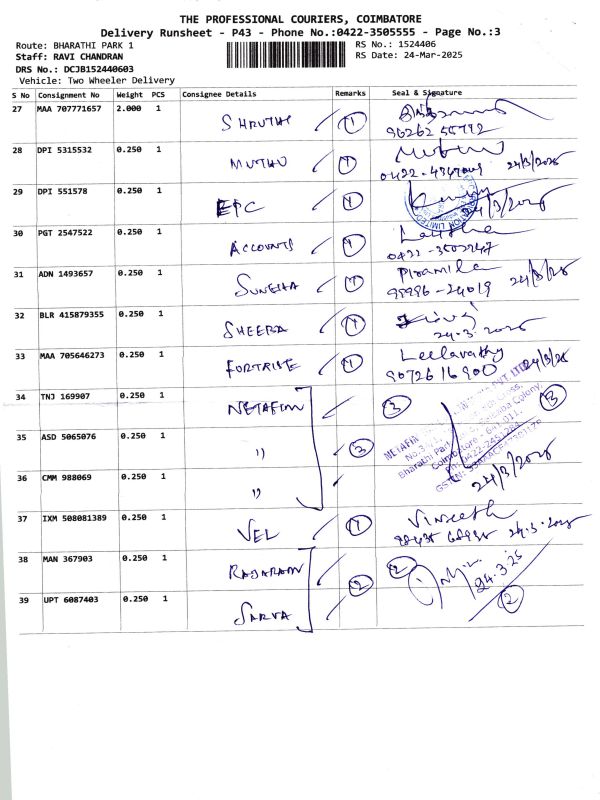 THE PROFESSIONAL COURIERS, COIMBATORE
Delivery Runsheet - P43 - Phone No.:0422-3505555 - Page No.:3
Route: BHARATHI PARK 1 RS No.: 1524406
Staff: RAVI CHANDRAN RS Date: 24-Mar-2025
DRS No.: DCJB152440603
Vehicle: Two Wheeler Delivery
S No Consignment No Weight PCS Consignee Details Remarks Seal & Signature
27 MAA 707771657 2.000 1 SHRUTHI 1
28 DPI 5315532 0.250 1 MUTHU 1 24/3/2025
29 DPI 551578 0.250 1 EPC 1 24/3/2025
30 PGT 2547522 0.250 1 ACCOUNTS 1 Lalitha
31 ADN 1493657 0.250 1 SUNEHA 1 Piramila 24/3/25
32 BLR 415879355 0.250 1 SHEEBA 1
24.3.2025
33 MAA 705646273 0.250 1 FORTRISE 1 Leelavathy
9072616900 24/3/25
34 TNJ 169907 0.250 1 NETAFIM 3 3
35 ASD 5065076 0.250 1 " 3
36 CMM 988069 0.250 1 " 24/3/2025
37 IXM 508081389 0.250 1 VEL 1 Vineeth
24.3.2025
38 MAN 367903 0.250 1 RAJARAM 2 2 24.3.25
39 UPT 6087403 0.250 1 SARVA 2